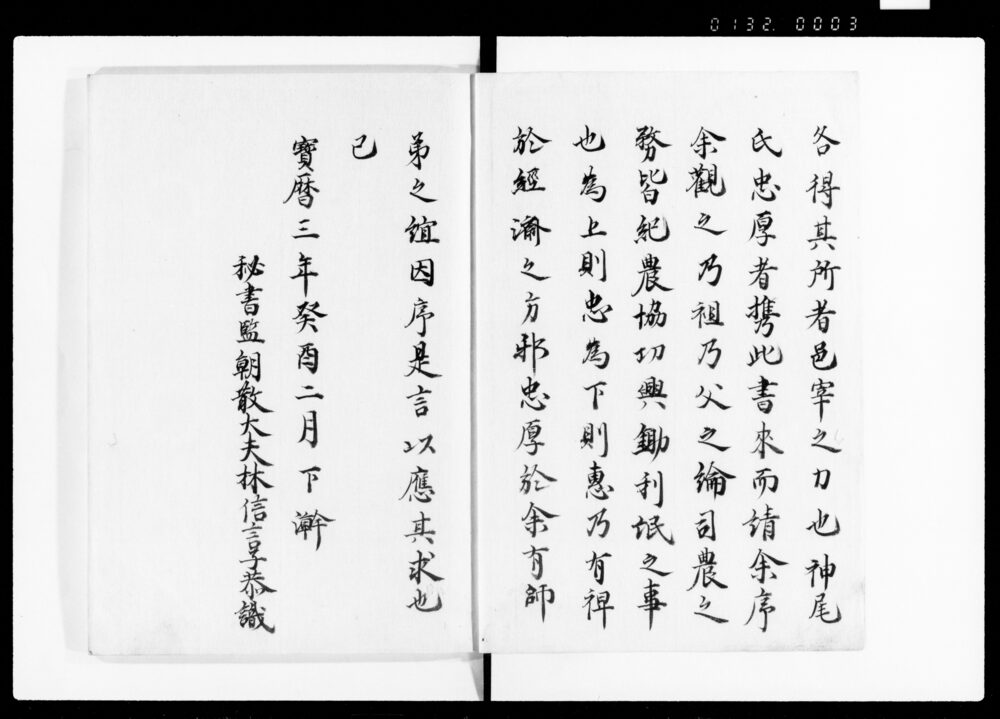 0132. 0003
各得其所者邑宰之力也神尾
氏忠厚者携此書來而請余序
余觀之乃祖乃父之論司農之
務皆紀農協功興鋤利氓之事
也為上則忠為下則惠乃有裨
於經濟之方邪忠厚於余有師
弟之誼因序是言以應其求也
已
寳暦三年癸酉二月下澣
秘書監朝散大夫林信言恭識